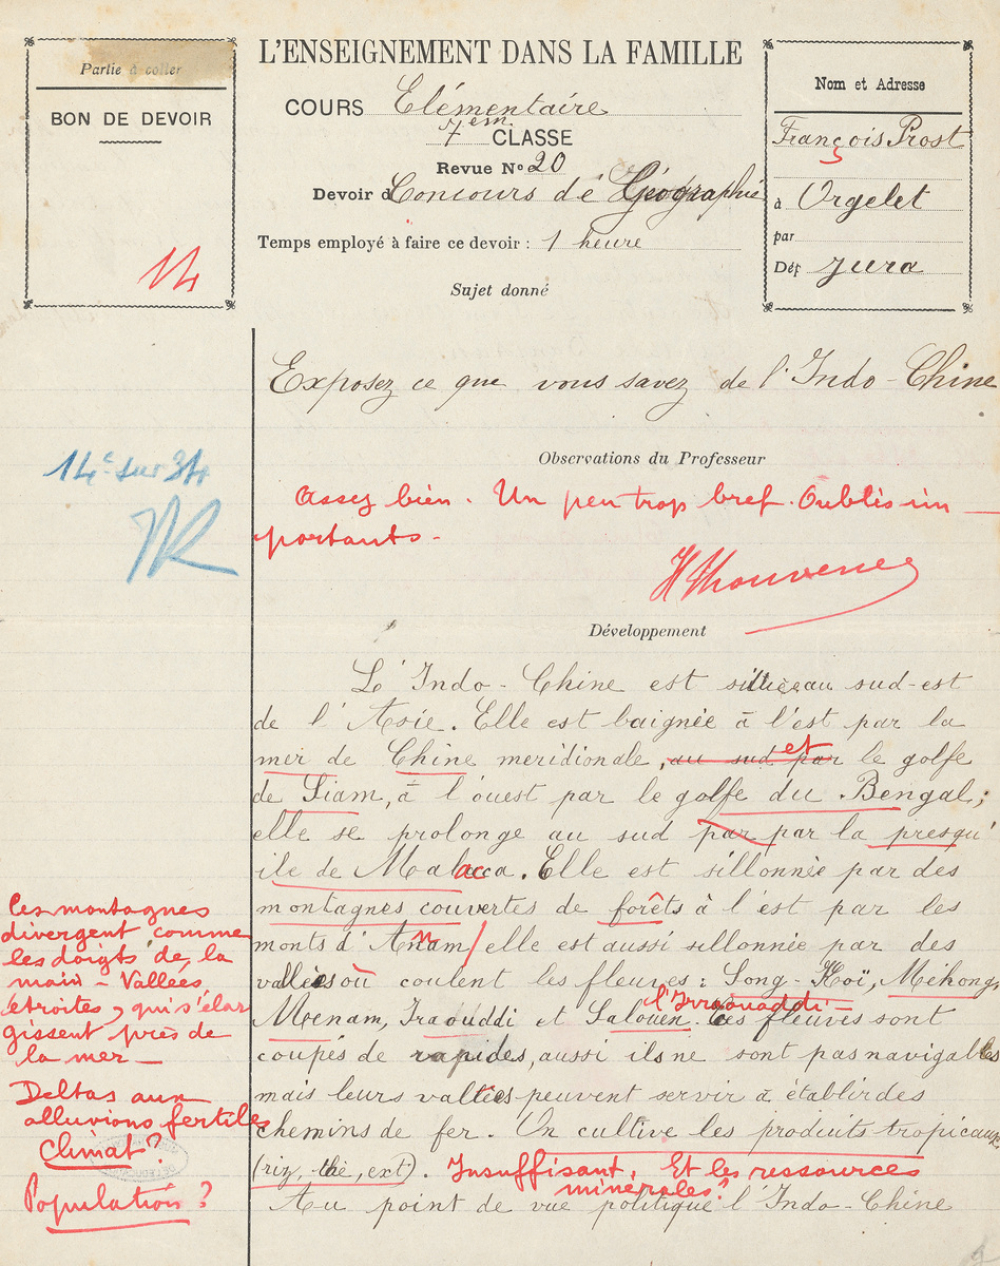 Partie à coller
BON DE DEVOIR
14
L'ENSEIGNEMENT DANS LA FAMILLE
COURS Elémentaire
7em. CLASSE
Revue No 20
Devoir de Concours de Géographie
Temps employé à faire ce devoir : 1 heure
Sujet donné
Nom et Adresse
François Prost
à Orgelet
par
Dép Jura
Exposez ce que vous savez de l'Indo-Chine
14e sur 34
Observations du Professeur
Assez bien. Un peu trop bref. Oublis im-
portants.
Développement
L'Indo-Chine est située au sud-est
de l'Asie. Elle est baignée à l'est par la
mer de Chine meridionale, au sud par et le golfe
de Siam, à l'ouest par le golfe du Bengal;
elle se prolonge au sud par par la presqu'
ile de Malacca. Elle est sillonnée par des
montagnes couvertes de forêts à l'est par les
monts d'Annam/elle est aussi sillonnée par des
vallées où coulent les fleuves : Song-Koï, Mékong,
l'Irraouaddi
Menam, Iraouddi et Salouen. Ces fleuves sont
coupés de rapides, aussi ils ne sont pas navigables
mais leurs vallées peuvent servir à établir des
chemins de fer. On cultive les produits tropicaux
(riz, thé, ext). Insuffisant. Et les ressources
minérales?
Au point de vue politique l'Indo-Chine
Ces montagnes
divergent comme
les doigts de la
main - Vallées
étroites, qui s'élar
gissent près de
la mer -
Deltas aux
alluvions fertiles
Climat?
Population?